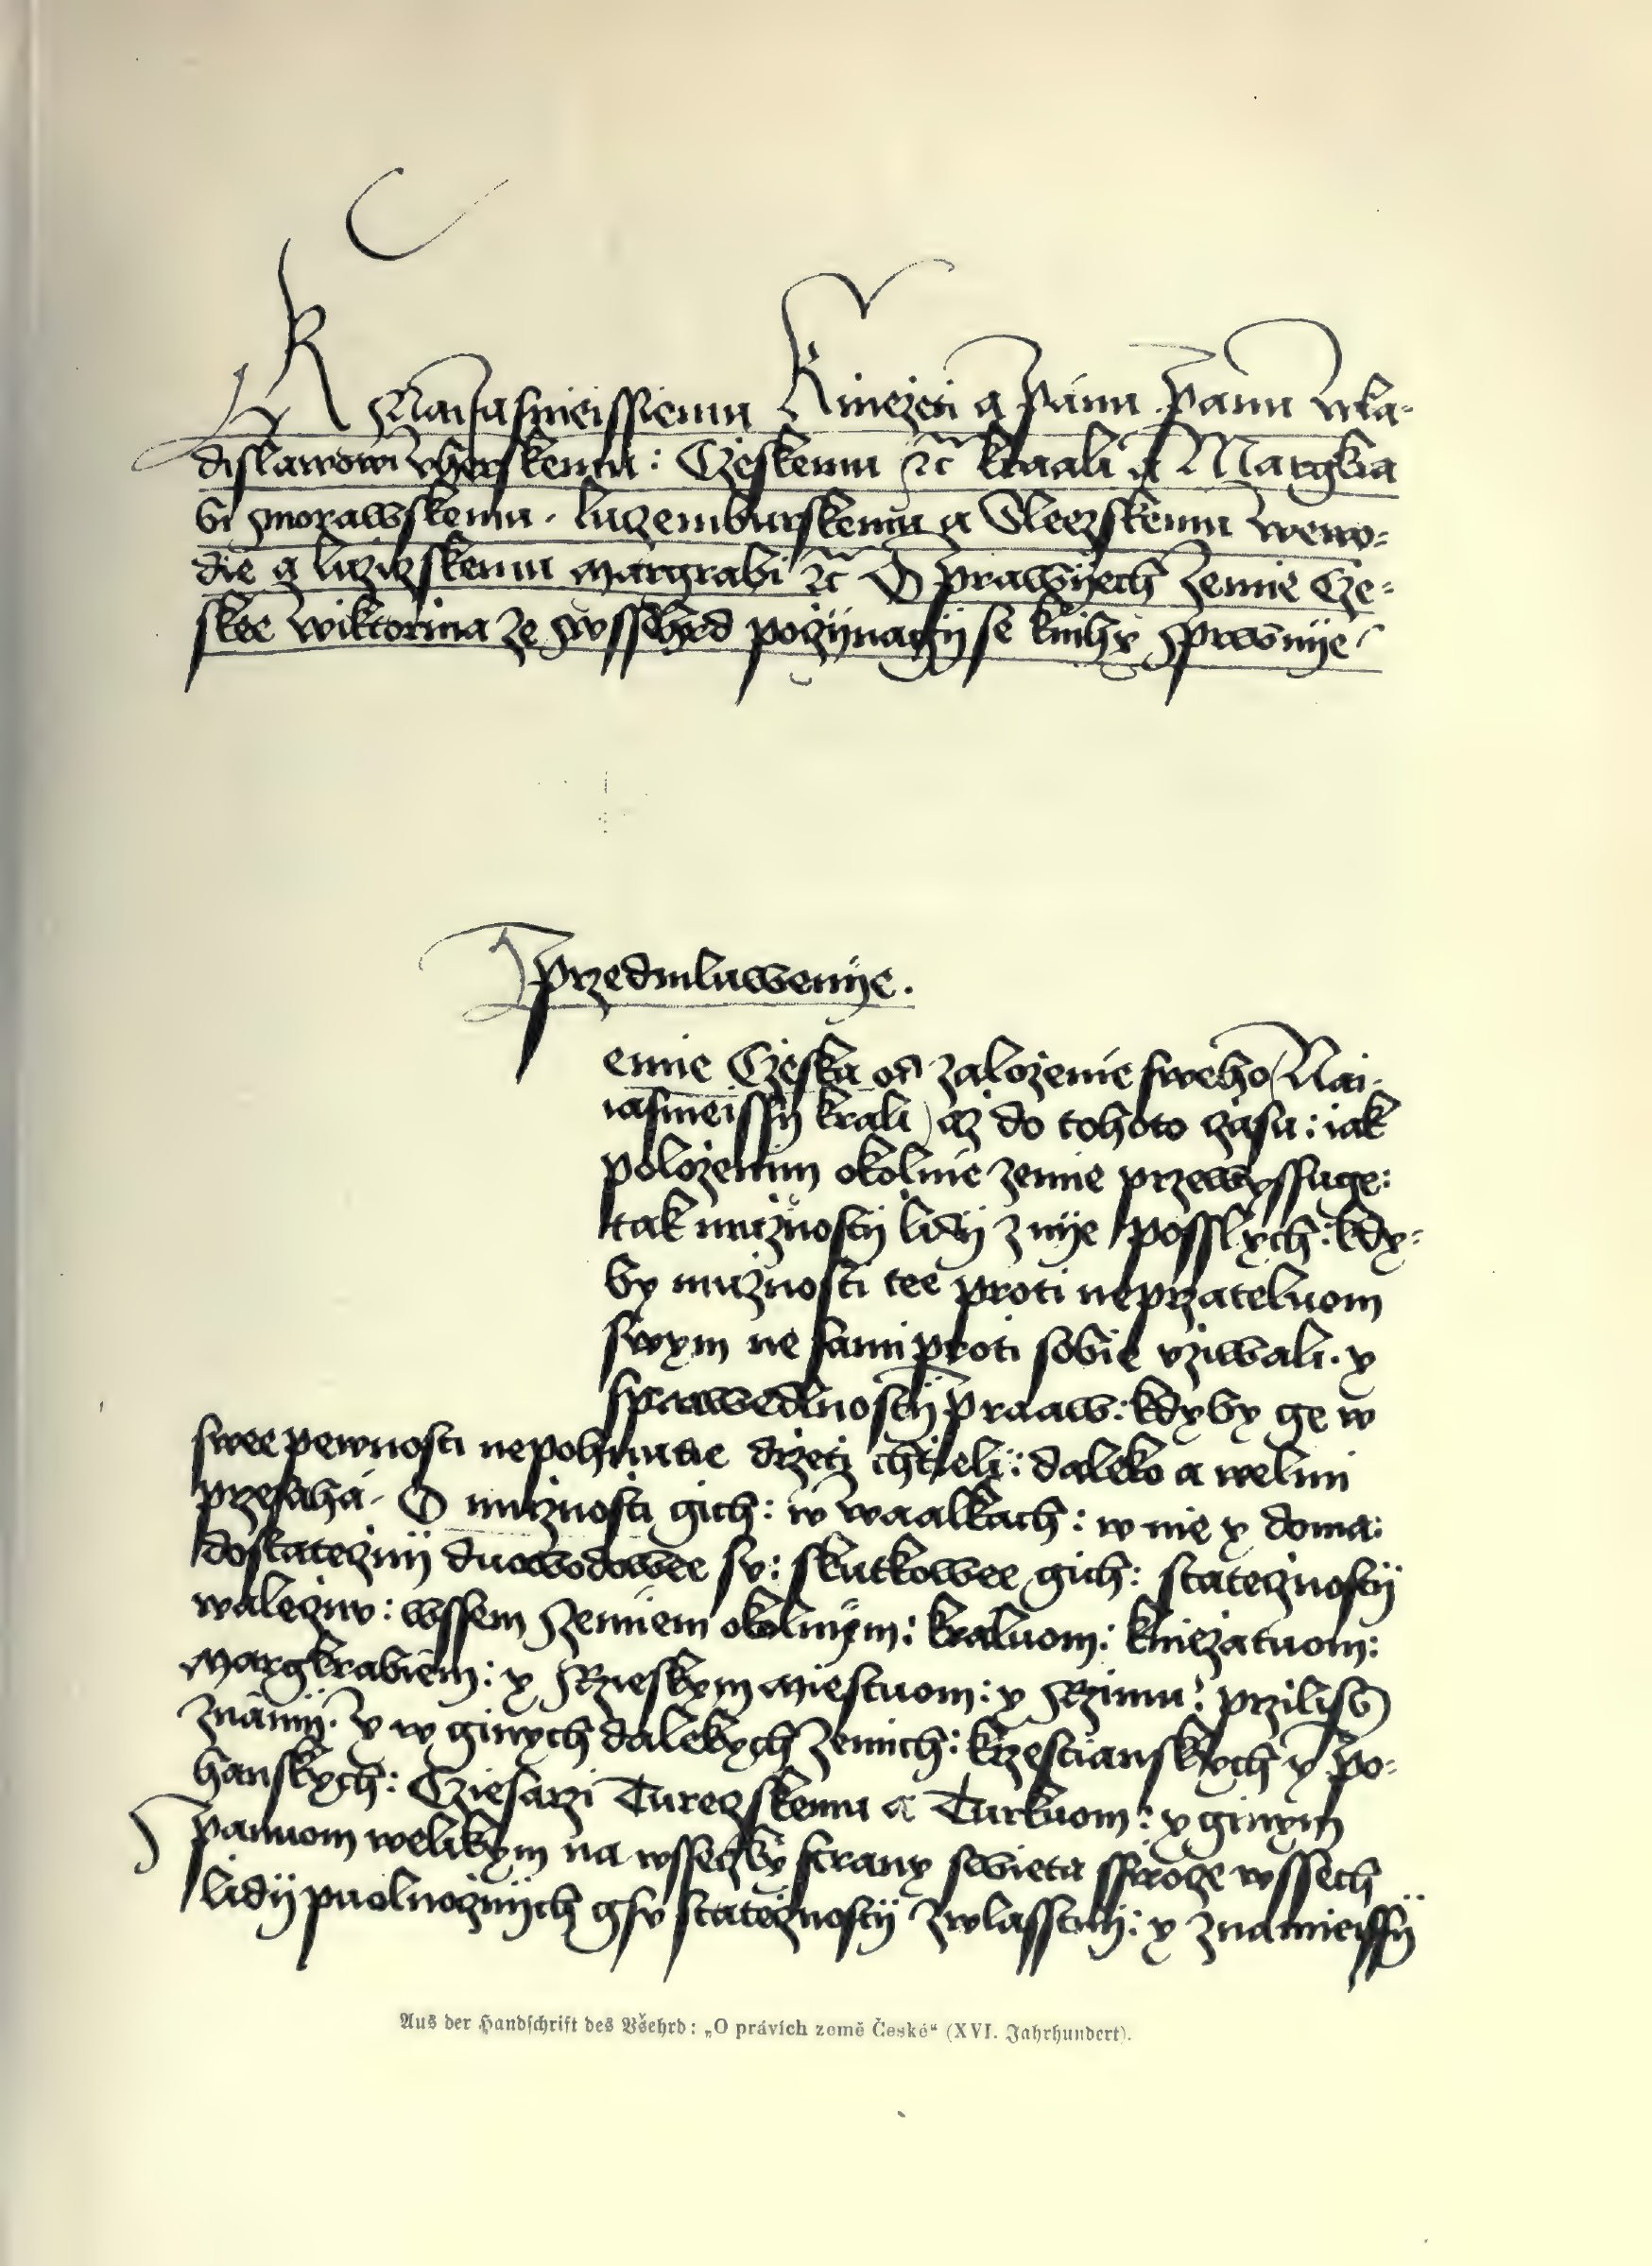 K Naiiasneissiemu Kniezeti a Panu Panu wla-
dislawowi vherskemu: Czeskemu ⁊č kraali a Margkra
bi Morawskemu. luczemburskemu a Sleezskemu wewo-
die a luziczskemu margrabi ⁊č O prawijech Zemie Cze-
skee wiktorina ze wssehrd poczijnagij se knihy prwnije
Przedmluwenije.
emie Czeska od založenie sweho (Nai-
iasneissij krali) až do tohoto času: iak
položenim okolnie zemie przewyssuge:
tak mužnostij lidij z nije posslych: kdy-
by mužnosti tee proti neprzateluom
swym ne sami proti sobie vžiwali. y
sprawedlnostij praaw: kdyby ge w
swee pewnosti nepohnutie držeti chtieli: daleko a welmi
przesaha. O mužnosti gich: w waalkach: w nie y doma:
dostatecznij duowodowee su: skutkowee gich: stateczností
walecznu: wssem zemiem okolnijm: kraluom: kniežatuom:
Margkrabiem: y Rzieskym miestuom: y Rzimu: przilis
znamij. y w ginych dalekych Zemich: krzestianskych y po-
hanskych: Cziesarzi Tureczskemu a Turkuom: y ginym
panuom welikym na wsseczky strany swieta ssiroze wssech
lidij puolnocznijch gsu statecznostij zwlasstnij: y znamieissij
Aus der Handschrift des Všehrd: „O právích země České“ (XVI. Jahrhundert).